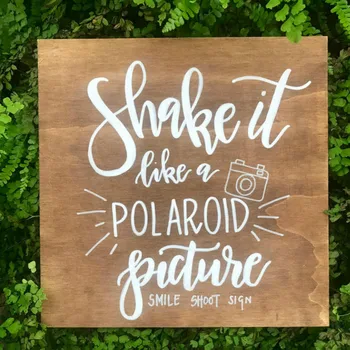 Shake it
like a
POLAROID
picture
SMILE SHOOT SIGN